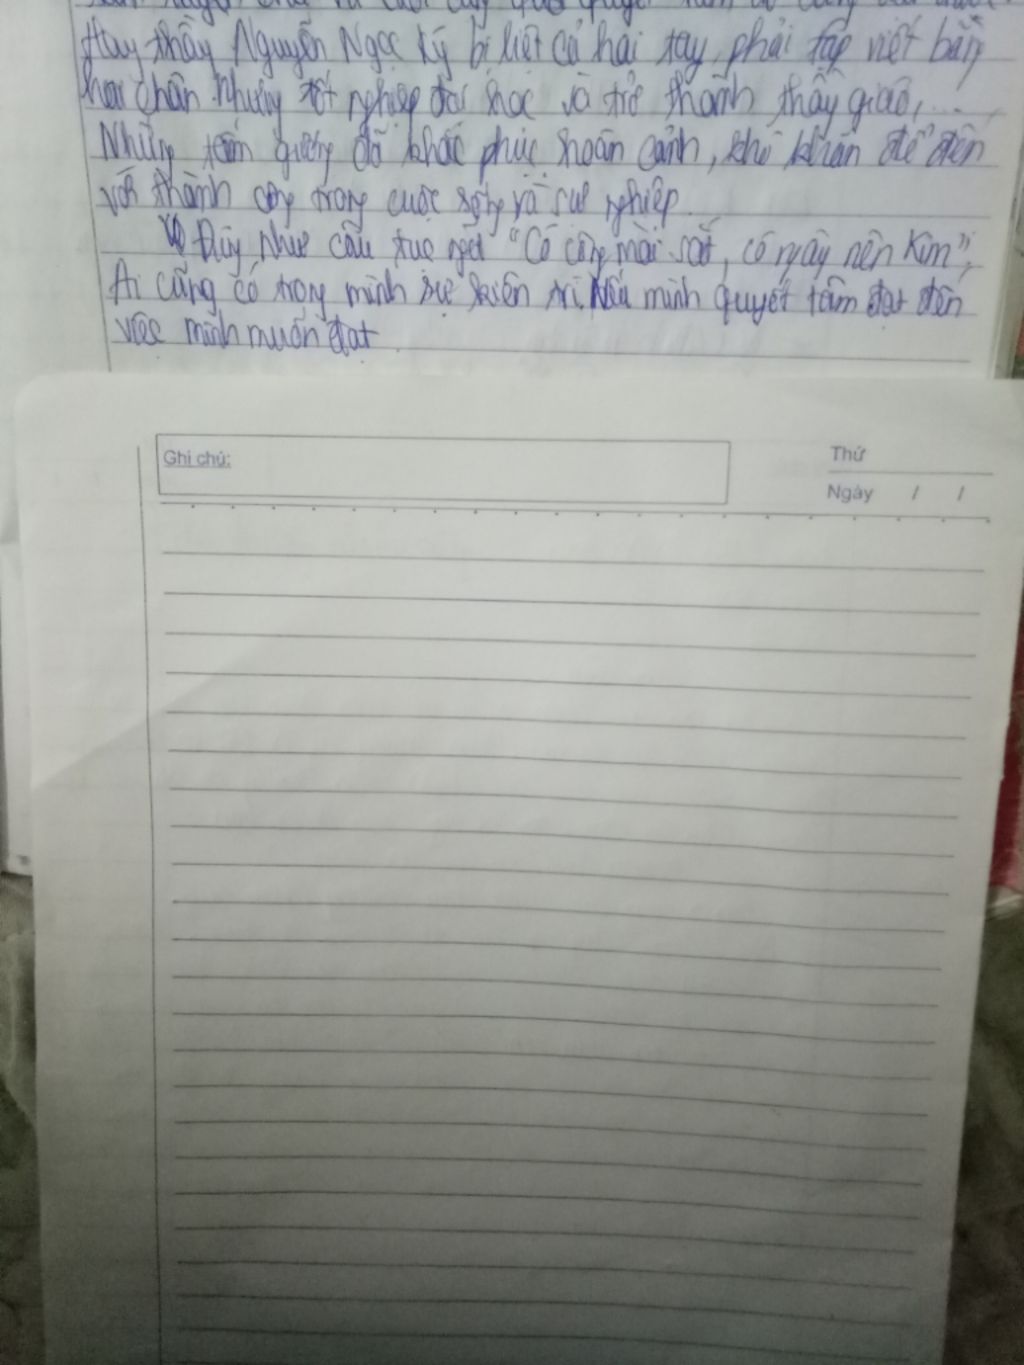 Hay thầy Nguyễn Ngọc Ký bị liệt cả hai tay, phải tập viết bằng
hai chân. Nhưng tốt nghiệp đại học và trở thành thầy giáo,...
Những tấm gương đã khắc phục hoàn cảnh, khó khăn để đến
với thành công trong cuộc sống và sự nghiệp.
Đúng như câu tục ngữ "Có công mài sắt, có ngày nên kim",
Ai cũng có trong mình sự kiên trì. Nếu mình quyết tâm đạt đến
việc mình muốn đạt.
Ghi chú:
Thứ
Ngày / /